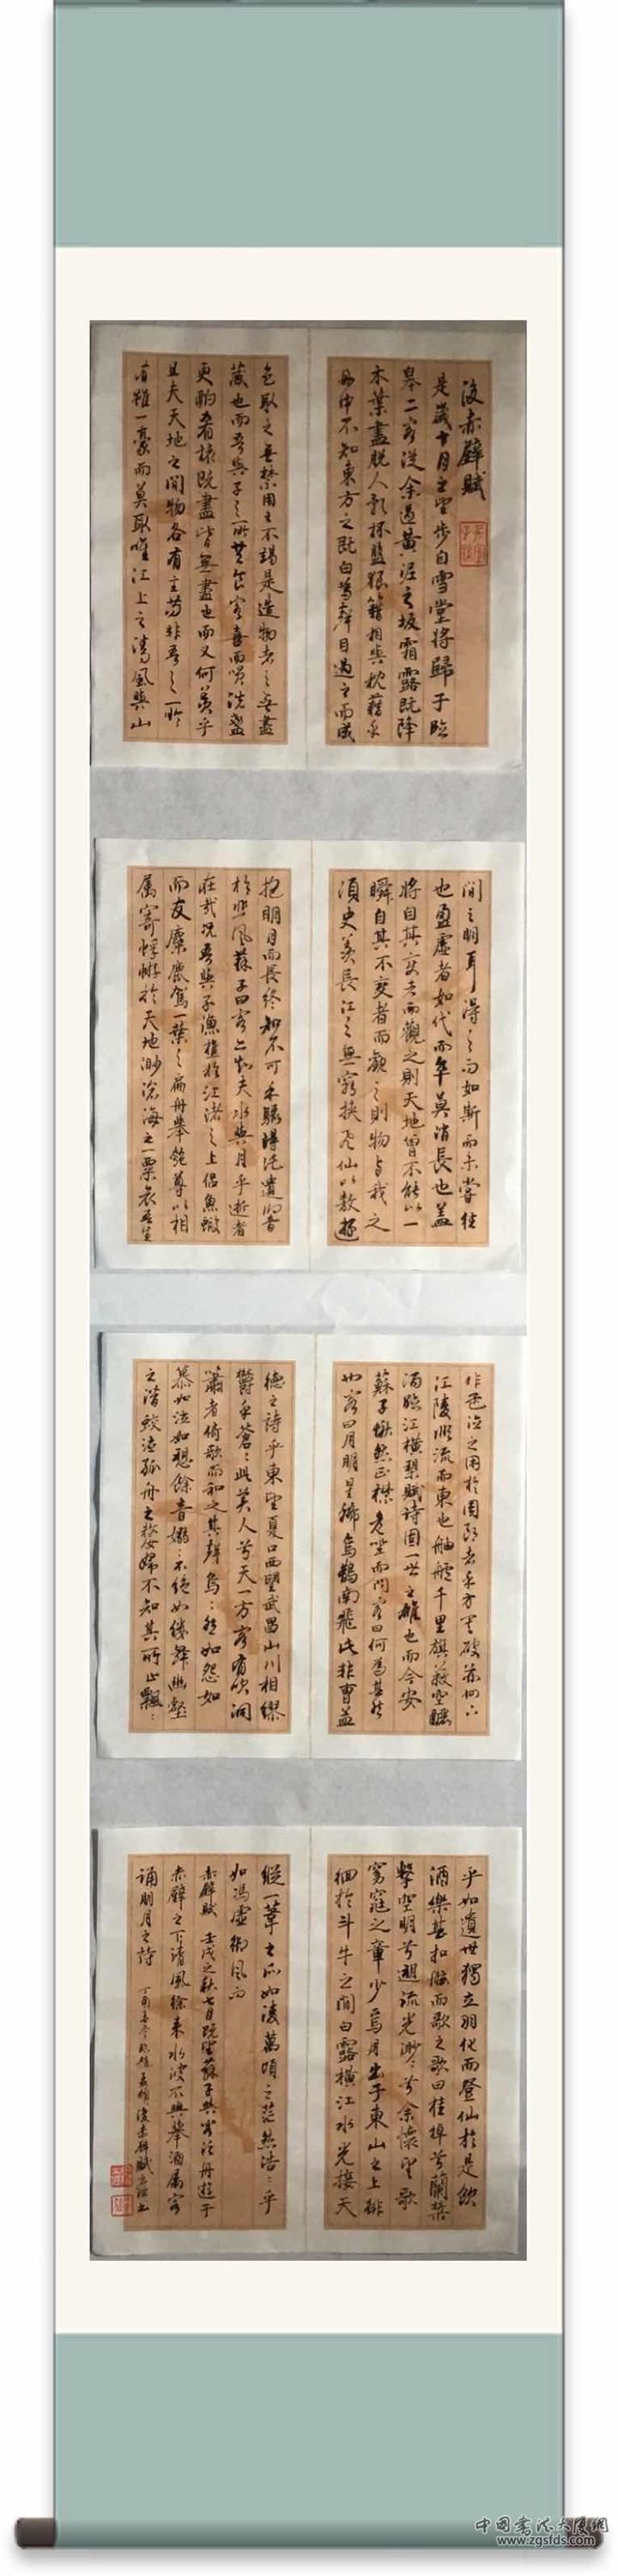 後赤壁賦
是歲十月之望步自雪堂將歸于臨
皋二客從余過黃泥之坂霜露既降
木葉盡脫人影杯盤狼籍相與枕藉乎
舟中不知東方之既白
色取之無禁用之不竭是造物者之無盡
藏也而吾與子之所共食客喜而笑洗盞
更酌肴核既盡皆無盡也而又何羨乎
且夫天地之間物各有主苟非吾之所
有雖一豪而莫取惟江上之清風與山
間之明耳得之而如斯而未嘗往
也盈虛者如代而卒莫消長也蓋
將自其變者而觀之則天地曾不能以一
瞬自其不變者而觀之則物與我之
須臾羨長江之無窮挾飛仙以敖遊
抱明月而長終知不可乎驟得託遺響
於悲風蘇子曰客亦知夫水與月乎逝者
在哉況吾與子漁樵於江渚之上侶魚蝦
而友麋鹿駕一葉之扁舟舉匏尊以相
屬寄蜉蝣於天地渺滄海之一粟哀吾生
江陵順流而東也舳艫千里旗蔽空釃
酒臨江橫槊賦詩固一世之雄也而今安
蘇子愀然正襟危坐而問客曰何為其然
也客曰月明星稀烏鵲南飛此非曹孟
德之詩乎東望夏口西望武昌山川相繆
鬱乎蒼蒼此美人兮天一方客有吹洞
簫者倚歌而和之其聲烏烏然如怨如
慕如泣如愬餘音嫋嫋不絕如縷舞幽壑
之潛蛟泣孤舟之嫠婦不知其所止飄飄
乎如遺世獨立羽化而登仙於是飲
酒樂甚扣舷而歌之歌曰桂棹兮蘭槳
擊空明兮遡流光渺渺兮余懷望歌
窈窕之章少焉月出于東山之上徘
徊於斗牛之間白露橫江水光接天
縱一葦之所如淩萬頃之茫然浩浩乎
如馮虛御風而
赤壁賦 壬戌之秋七月既望蘇子與客泛舟遊于
赤壁之下清風徐來水波不興舉酒屬客
誦明月之詩
中国书法大展网
www.zgsfds.com